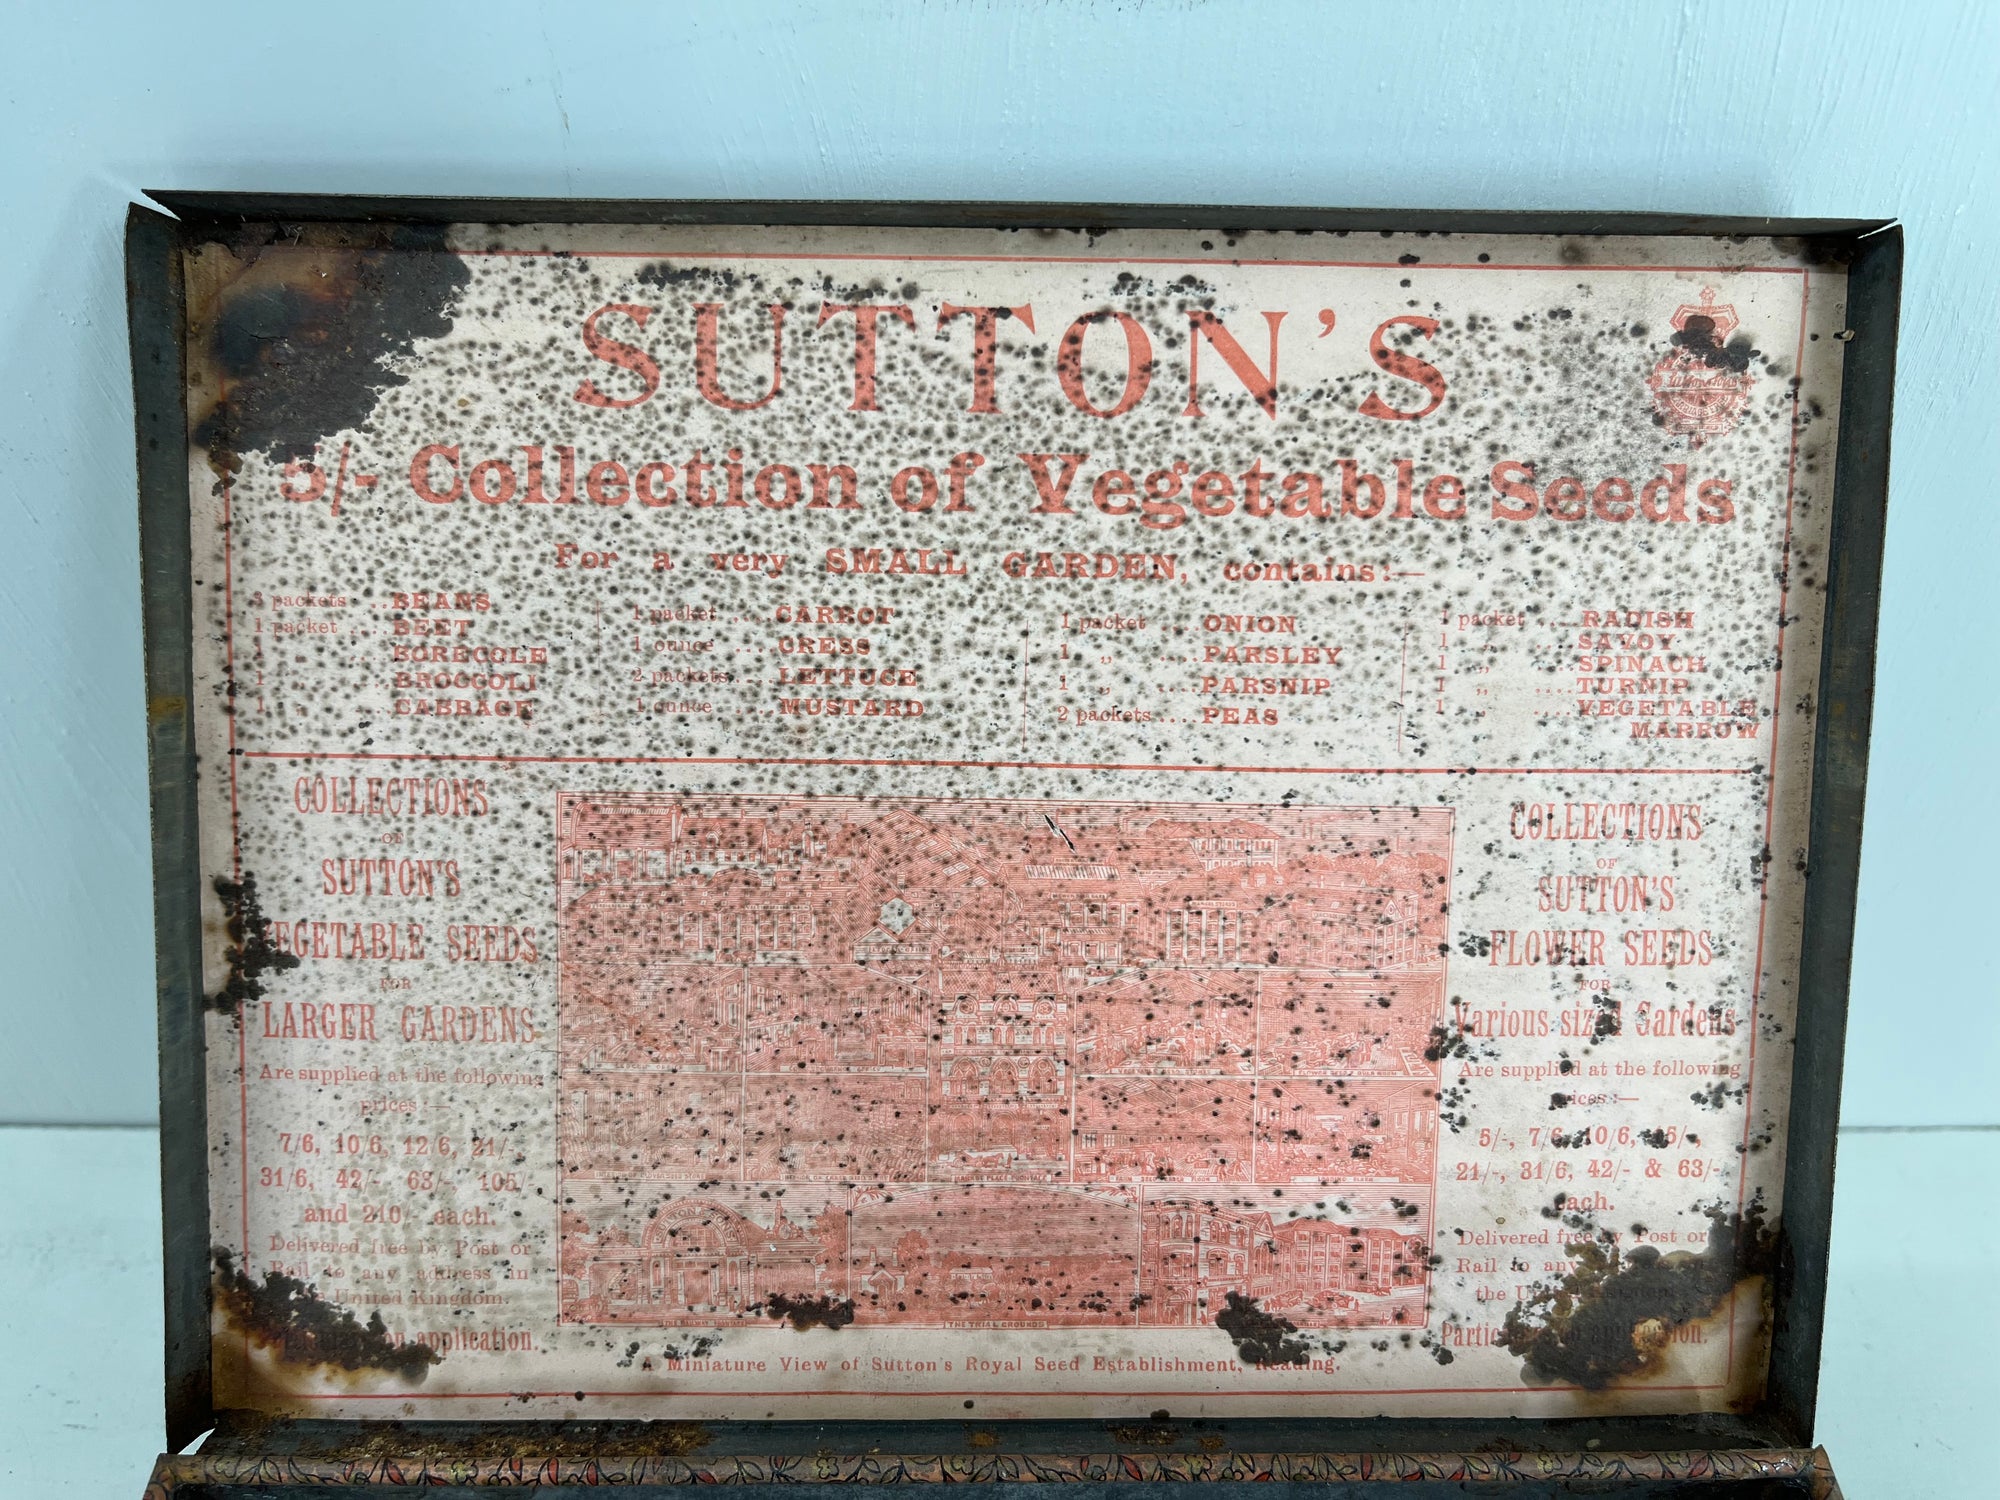 SUTTON'S
5/- Collection of Vegetable Seeds
For a very SMALL GARDEN, contains:—
3 packets .. BEANS
1 packet .... BEET
1 „ .... BORECOLE
1 „ .... BROCCOLI
1 „ .... CABBAGE
1 packet .... CARROT
1 ounce .... CRESS
2 packets .... LETTUCE
1 ounce .... MUSTARD
1 packet .... ONION
1 „ .... PARSLEY
1 „ .... PARSNIP
2 packets .... PEAS
1 packet .... RADISH
1 „ .... SAVOY
1 „ .... SPINACH
1 „ .... TURNIP
1 „ .... VEGETABLE
MARROW
COLLECTIONS
OF
SUTTON'S
VEGETABLE SEEDS
FOR
LARGER GARDENS
Are supplied at the following
prices:—
7/6, 10/6, 12/6, 21/-,
31/6, 42/-, 63/-, 105/-
and 210/- each.
Delivered free by Post or
Rail to any address in
the United Kingdom.
Particulars on application.
SUTTON & SONS
THE TRIAL GROUNDS
A Miniature View of Sutton's Royal Seed Establishment, Reading.
COLLECTIONS
OF
SUTTON'S
FLOWER SEEDS
FOR
Various sized Gardens
Are supplied at the following
prices:—
5/-, 7/6, 10/6, 15/-,
21/-, 31/6, 42/- & 63/-
each.
Delivered free by Post or
Rail to any
the United Kingdom.
Particulars on application.